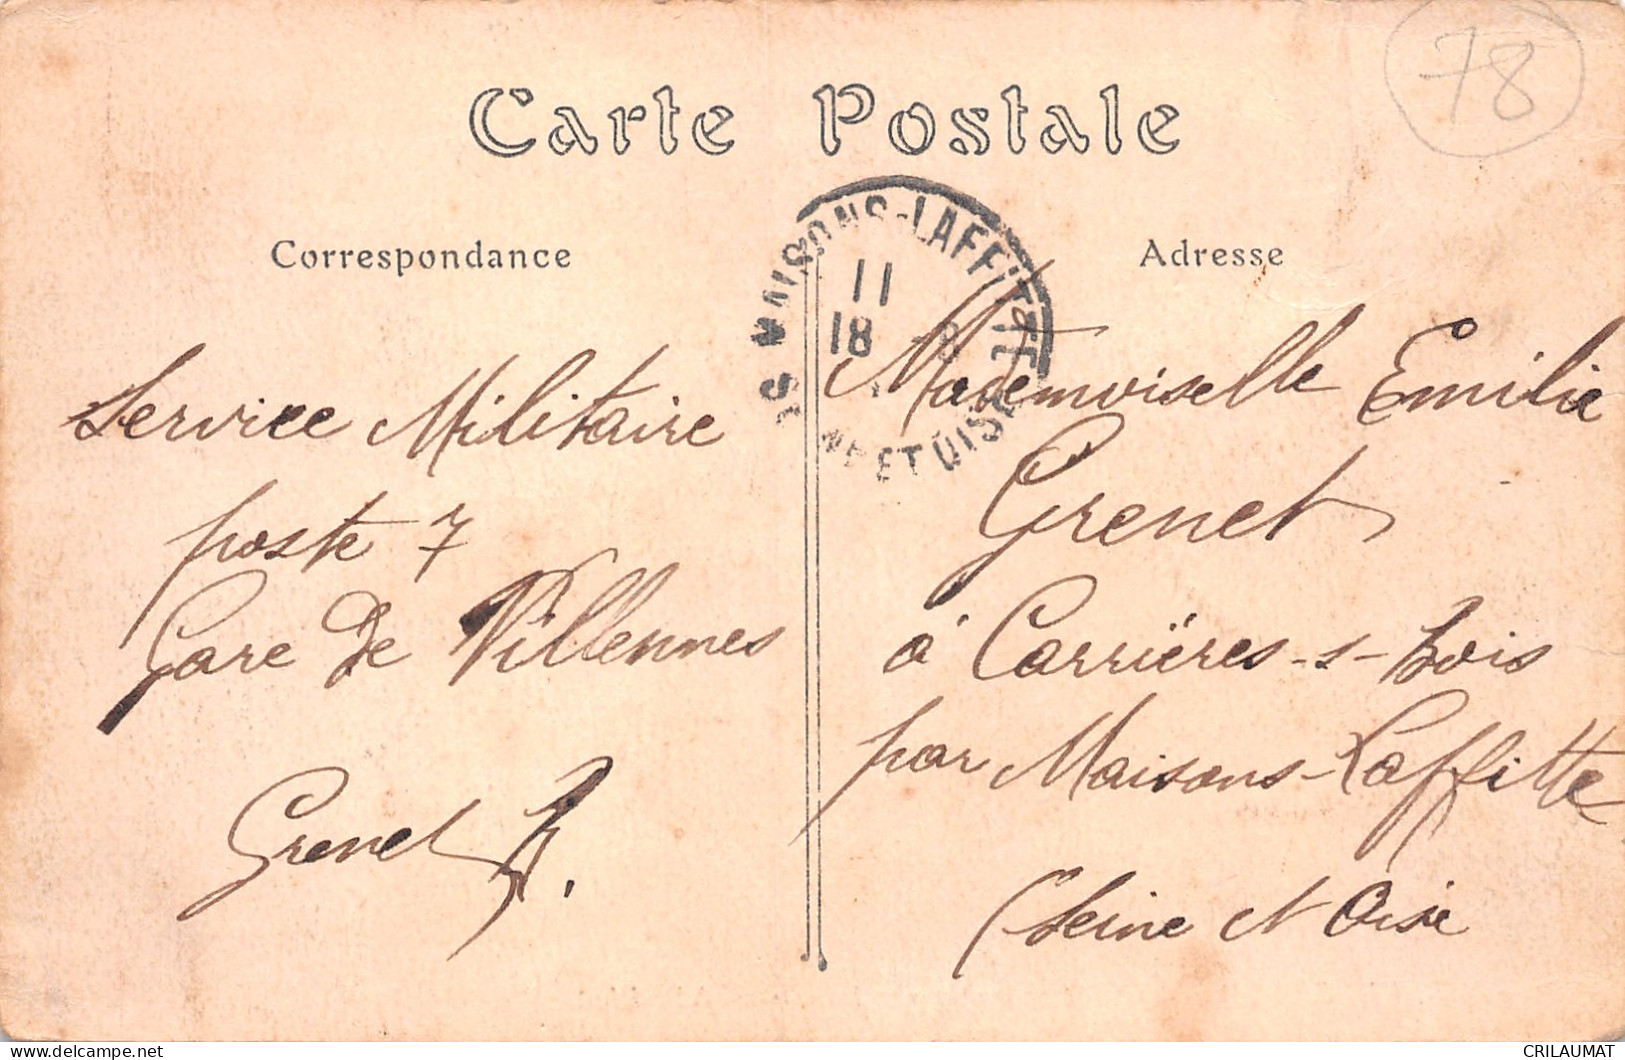 78
Carte Postale
Correspondance
Adresse
MAISONS-LAFFITTE
11
18
ET OISE
Service Militaire
poste 7
Gare de Villennes
Grenet
Mademoiselle Emilie
Grenet
à Carrières-s-bois
par Maisons-Laffitte
(Seine et Oise
delcampe.net
CRILAUMAT